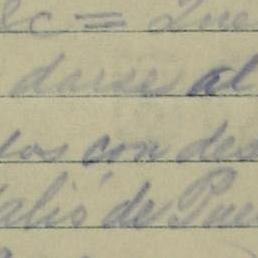 &c = Que
darse al
los con des
Salió de Pue